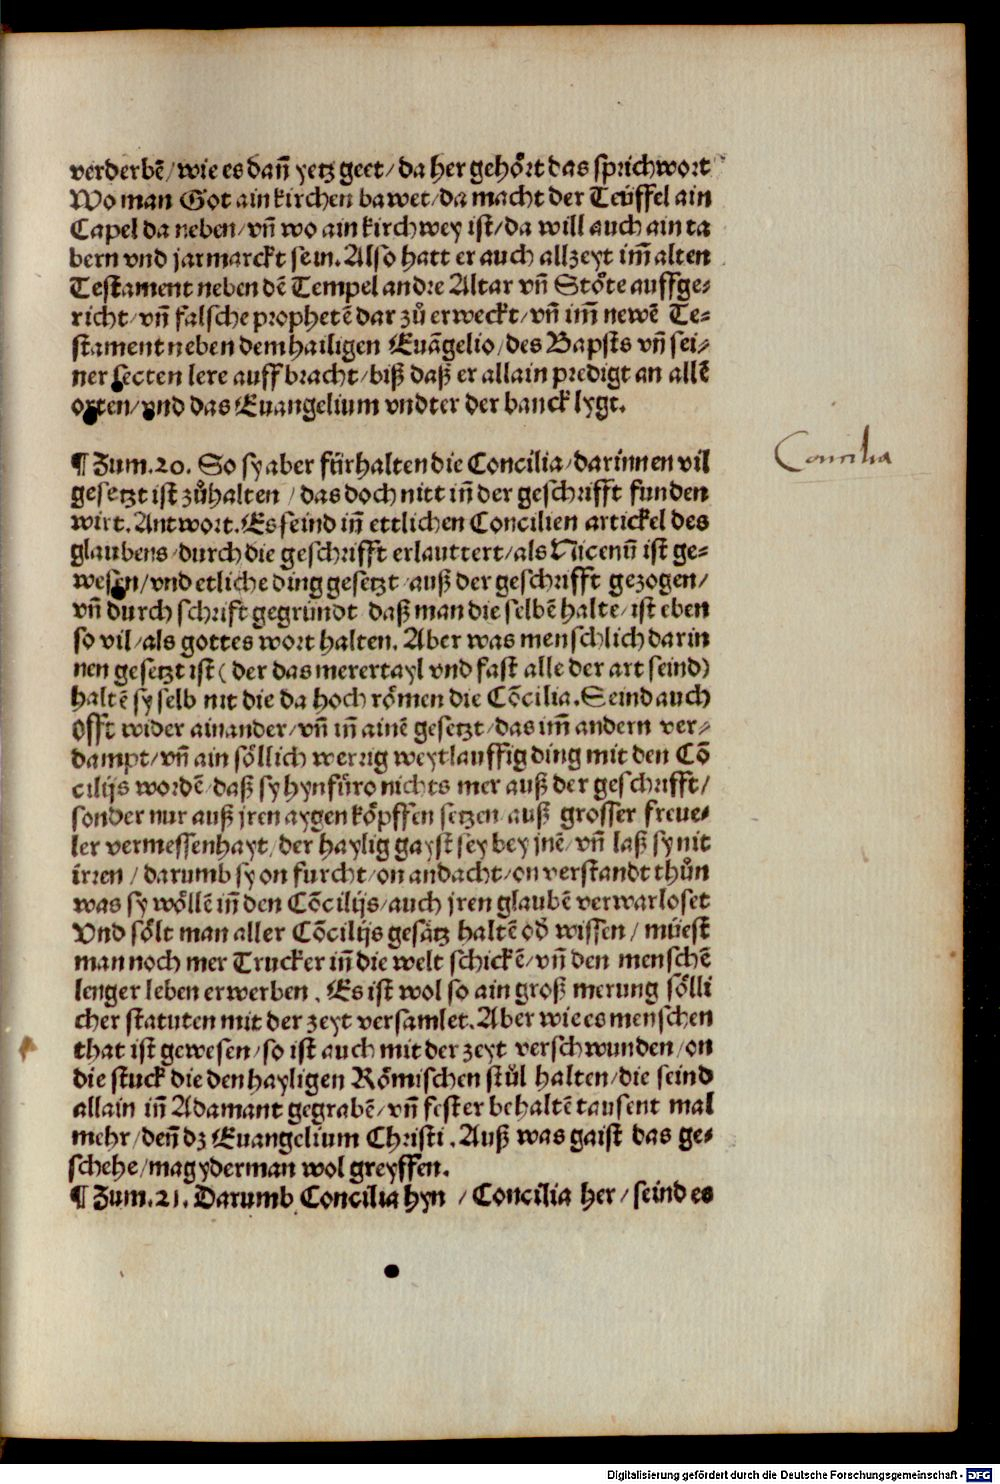 verderbẽ/ wie es dañ yetz geet/ da her gehört das sprichwort
Wo man Got ain kirchen bawet/ da macht der Teüffel ain
Capel da neben/ vñ wo ain kirchwey ist/ da will auch ain ta
bern vnd jarmarckt sein. Also hatt er auch allzeyt im̃ alten
Testament neben dẽ Tempel andre Altar vñ Stöte auffge⸗
richt/ vñ falsche prophetẽ dar zů erweckt/ vñ im̃ newẽ Te⸗
stament neben dem hailigen Euãgelio/ des Bapsts vñ sei⸗
ner secten lere auff bracht/ biß daß er allain predigt an allẽ
orten/ vnd das Euangelium vndter der banck lygt.
¶ Zum .20. So sy aber fürhalten die Concilia/ darinnen vil
gesetzt ist zůhalten / das doch nitt iñ der geschrifft funden
wirt. Antwort. Es seind iñ ettlichen Concilien artickel des
glaubens/ durch die geschrifft erlauttert/ als Nicenũ ist ge⸗
wesen/ vnd etliche ding gesetzt/ auß der geschrifft gezogen/
vñ durch schrift gegründt daß man die selbẽ halte/ ist eben
so vil/ als gottes wort halten. Aber was menschlich darin
nen gesetzt ist ( der das merertayl vnd fast alle der art seind)
haltẽ sy selb nit die da hoch römen die Cõcilia. Seind auch
offt wider ainander/ vñ iñ ainẽ gesetzt/ das im̃ andern ver⸗
dampt/ vñ ain söllich werrig weytlauffig ding mit den Cõ
cilijs wordẽ/ daß sy hynfüro nichts mer auß der geschrifft/
sonder nur auß jren aygen köpffen setzen/ auß grosser freue⸗
ler vermessenhayt/ der haylig gayst sey bey jnẽ/ vñ laß sy nit
irren / darumb sy on furcht/ on andacht/ on verstandt thůn
was sy wöllẽ iñ den Cõcilijs/ auch jren glaubẽ verwarloset
Vnd sölt man aller Cõcilijs gesätz haltẽ od̾ wissen / müest
man noch mer Trucker iñ die welt schickẽ/ vñ den menschẽ
lenger leben erwerben . Es ist wol so ain groß merung sölli
cher statuten mit der zeyt versamlet. Aber wie es menschen
that ist gewesen/ so ist auch mit der zeyt verschwunden/ on
die stuck die den hayligen Römischen stůl halten/ die seind
allain iñ Adamant gegrabẽ/ vñ fester behaltẽ tausent mal
mehr/ deñ dz Euangelium Christi . Auß was gaist das ge⸗
schehe/ mag yderman wol greyffen.
¶ Zum .21. Darumb Concilia hyn / Concilia her/ seind es
Concilia
Digitalisierung gefördert durch die Deutsche Forschungsgemeinschaft - DFG